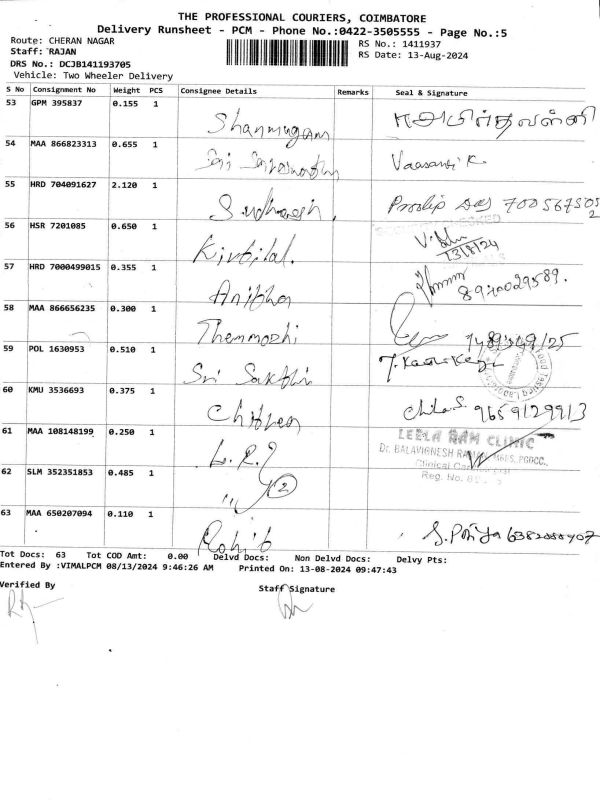 THE PROFESSIONAL COURIERS, COIMBATORE
Delivery Runsheet - PCM - Phone No.:0422-3505555 - Page No.:5
Route: CHERAN NAGAR
RS No.: 1411937
Staff: RAJAN
RS Date: 13-Aug-2024
DRS No.: DCJB141193705
Vehicle: Two Wheeler Delivery
S No Consignment No Weight PCS Consignee Details Remarks Seal & Signature
53 GPM 395837 0.155 1 Shanmugam
54 MAA 866823313 0.655 1 Vaasanti K.
55 HRD 704091627 2.120 1 Sudharesh
56 HSR 7201085 0.650 1 Kirtilal. 13/8/24
57 HRD 7000499015 0.355 1 Anitha
58 MAA 866656235 0.300 1 Thenmozhi
59 POL 1630953 0.510 1 Sri Sakthi
60 KMU 3536693 0.375 1 Chithra Chila S. 9659129913
61 MAA 108148199 0.250 1 LEELA RAM CLINIC
Dr. BALAVIGNESH
Reg. No.
62 SLM 352351853 0.485 1 2
63 MAA 650207094 0.110 1 Rohit S. Priya
Tot Docs: 63 Tot COD Amt: 0.00 Delvd Docs: Non Delvd Docs: Delvy Pts:
Entered By :VIMALPCM 08/13/2024 9:46:26 AM Printed On: 13-08-2024 09:47:43
Verified By Staff Signature